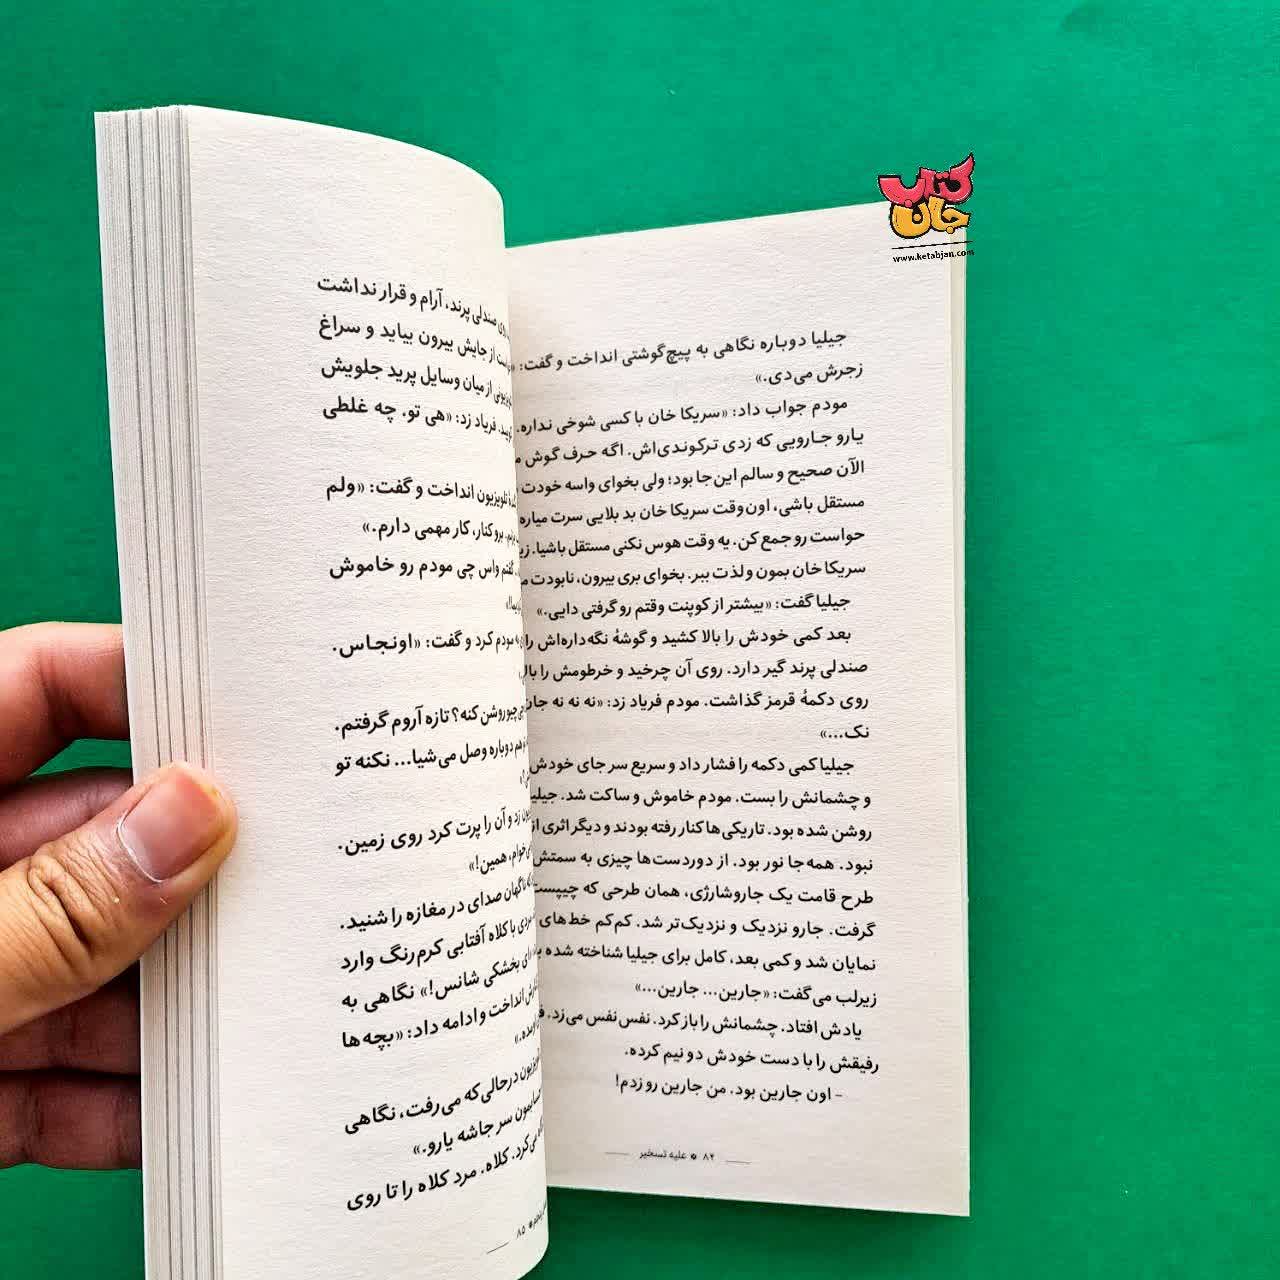 کتاب
جان
www.ketabjan.com
جیلیا دوباره نگاهی به پیچ‌گوشتی انداخت و گفت:
زجرش می‌دی.»
مودم جواب داد: «سریکا خان با کسی شوخی نداره.
یارو جارویی که زدی ترکوندی‌اش. اگه حرف گوش
الآن صحیح و سالم این‌جا بود؛ ولی بخوای واسه خودت
مستقل باشی، اون‌وقت سریکا خان بد بلایی سرت میاره
حواست رو جمع کن. یه وقت هوس نکنی مستقل باشیا.
سریکا خان بمون و لذت ببر. بخوای بری بیرون، نابودت
جیلیا گفت: «بیشتر از کوپنت وقتم رو گرفتی دایی.»
بعد کمی خودش را بالا کشید و گوشهٔ نگه‌داره‌اش را
صندلی پرند گیر دارد. روی آن چرخید و خرطومش را
روی دکمهٔ قرمز گذاشت. مودم فریاد زد: «نه نه نه
نک...»
جیلیا کمی دکمه را فشار داد و سریع سر جای خودش
و چشمانش را بست. مودم خاموش و ساکت شد.
روشن شده بود. تاریکی‌ها کنار رفته بودند و دیگر اثری
نبود. همه‌جا نور بود. از دوردست‌ها چیزی به سمتش
طرح قامت یک جاروشارژی، همان طرحی که
گرفت. جارو نزدیک و نزدیک‌تر شد. کم‌کم خط‌های
نمایان شد و کمی بعد، کامل برای جیلیا شناخته شده
زیرلب می‌گفت: «جارین... جارین...»
یادش افتاد. چشمانش را باز کرد. نفس‌نفس می‌زد.
رفیقش را با دست خودش دو نیم کرده.
- اون جارین بود. من جارین رو زدم!
۸۴ علیه تسخیر
صندلی پرند، آرام و قرار نداشت
از جایش بیرون بیاید و سراغ
از میان وسایل پرید جلویش
فریاد زد: «هی تو. چه غلطی
تلویزیون انداخت و گفت: «ولم
برو کنار، کار مهمی دارم.»
گفتم واس چی مودم رو خاموش
مودم کرد و گفت: «اونجاس.
روشن کنه؟ تازه آروم گرفتم.
هم دوباره وصل می‌شیا... نکنه تو
زد و آن را پرت کرد روی زمین.
همین!»
ناگهان صدای در مغازه را شنید.
با کلاه آفتابی کرم‌رنگ وارد
بخشکی شانس!» نگاهی به
انداخت و ادامه داد: «بچه‌ها
درحالی‌که می‌رفت، نگاهی
سر جاشه یارو.»
می‌کرد. کلاه. مرد کلاه را تا روی
۸۵